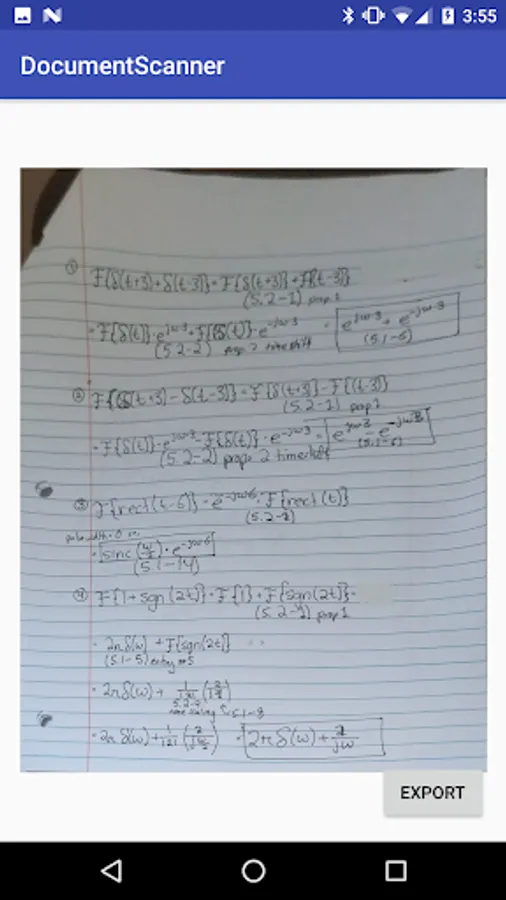 3:55
DocumentScanner
① F{δ(t+3)+δ(t-3)} = F{δ(t+3)} + F{(t-3)}
(5.2-1) prop 1
= F{δ(t)}·e^{jω3} + F{δ(t)}·e^{-jω3} = e^{jω3} + e^{-jω3}
(5.2-2) prop 2 timeshift (5.1-6)
② F{δ(t+3) - δ(t-3)} = F{δ(t+3)} - F{(t-3)}
(5.2-1) prop 1
= F{δ(t)}·e^{jω3} - F{δ(t)}·e^{-jω3} = e^{jω3} - e^{-jω3}
(5.2-2) prop 2 timeshift (5.1-6)
③ F{rect(t-6)} = e^{-jω6}·F{rect(t)}
(5.2-2)
= sinc(ω/2)·e^{-jω6}
(5.1-14)
④ F{1+sgn(2t)} = F{1} + F{sgn(2t)}
(5.2-1) prop 1
= 2πδ(ω) + F{sgn(2t)}
(5.1-5) entry #5
= 2πδ(ω) + 1/|2| (2/j)
time scaling 5.1-8
= 2πδ(ω) + 1/|2| (2/(jω/2)) = 2πδ(ω) + 2/jω
EXPORT